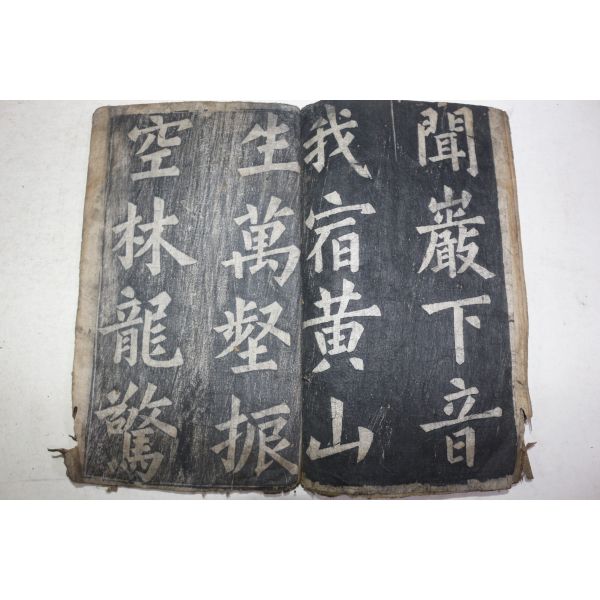 聞巖下音
我宿黃山
生萬壑振
空林龍驚